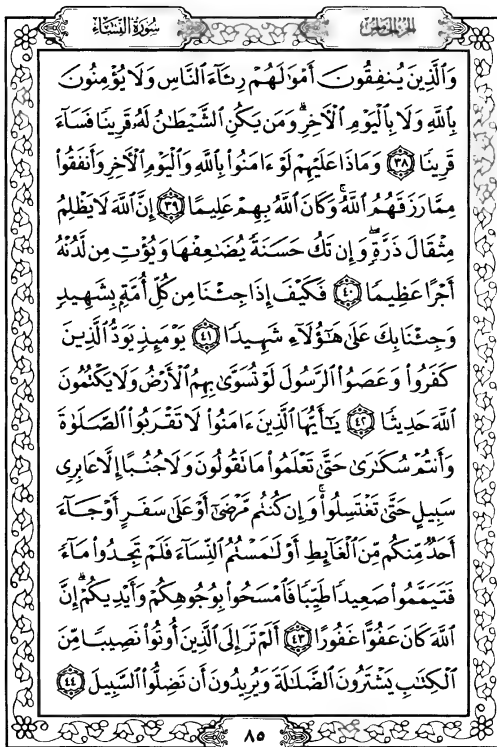 سورة النساء
الجزء الخامس
وَالَّذِينَ يُنفِقُونَ أَمْوَٰلَهُمْ رِئَآءَ النَّاسِ وَلَا يُؤْمِنُونَ
بِاللَّهِ وَلَا بِالْيَوْمِ الْأَخِرِ ۗ وَمَن يَكُنِ الشَّيْطَٰنُ لَهُۥ قَرِينًا فَسَآءَ
قَرِينًا ٣٨ وَمَاذَا عَلَيْهِمْ لَوْ ءَامَنُوا۟ بِاللَّهِ وَالْيَوْمِ الْأَخِرِ وَأَنفَقُوا۟
مِمَّا رَزَقَهُمُ اللَّهُ ۚ وَكَانَ اللَّهُ بِهِمْ عَلِيمًا ٣٩ إِنَّ اللَّهَ لَا يَظْلِمُ
مِثْقَالَ ذَرَّةٍ ۖ وَإِن تَكُ حَسَنَةً يُضَٰعِفْهَا وَيُؤْتِ مِن لَّدُنْهُ
أَجْرًا عَظِيمًا ٤٠ فَكَيْفَ إِذَا جِئْنَا مِن كُلِّ أُمَّةٍۭ بِشَهِيدٍ
وَجِئْنَا بِكَ عَلَىٰ هَٰٓؤُلَآءِ شَهِيدًا ٤١ يَوْمَئِذٍ يَوَدُّ الَّذِينَ
كَفَرُوا۟ وَعَصَوُا۟ الرَّسُولَ لَوْ تُسَوَّىٰ بِهِمُ الْأَرْضُ وَلَا يَكْتُمُونَ
اللَّهَ حَدِيثًا ٤٢ يَٰٓأَيُّهَا الَّذِينَ ءَامَنُوا۟ لَا تَقْرَبُوا۟ الصَّلَوٰةَ
وَأَنتُمْ سُكَٰرَىٰ حَتَّىٰ تَعْلَمُوا۟ مَا تَقُولُونَ وَلَا جُنُبًا إِلَّا عَابِرِى
سَبِيلٍ حَتَّىٰ تَغْتَسِلُوا۟ ۚ وَإِن كُنتُم مَّرْضَىٰٓ أَوْ عَلَىٰ سَفَرٍ أَوْ جَآءَ
أَحَدٌ مِّنكُم مِّنَ الْغَآئِطِ أَوْ لَٰمَسْتُمُ النِّسَآءَ فَلَمْ تَجِدُوا۟ مَآءً
فَتَيَمَّمُوا۟ صَعِيدًا طَيِّبًا فَامْسَحُوا۟ بِوُجُوهِكُمْ وَأَيْدِيكُمْ ۗ إِنَّ
اللَّهَ كَانَ عَفُوًّا غَفُورًا ٤٣ أَلَمْ تَرَ إِلَى الَّذِينَ أُوتُوا۟ نَصِيبًا مِّنَ
الْكِتَٰبِ يَشْتَرُونَ الضَّلَٰلَةَ وَيُرِيدُونَ أَن تَضِلُّوا۟ السَّبِيلَ ٤٤
٨٥